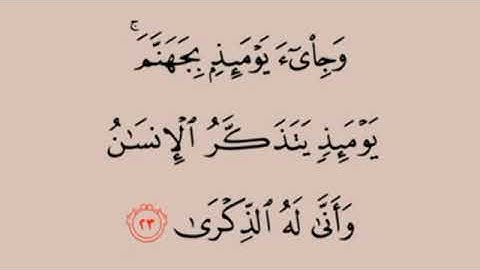 وَجِا۟ىٓءَ يَوۡمَئِذِۭ بِجَهَنَّمَۚ
يَوۡمَئِذٖ يَتَذَكَّرُ ٱلۡإِنسَٰنُ
وَأَنَّىٰ لَهُ ٱلذِّكۡرَىٰ ٢٣